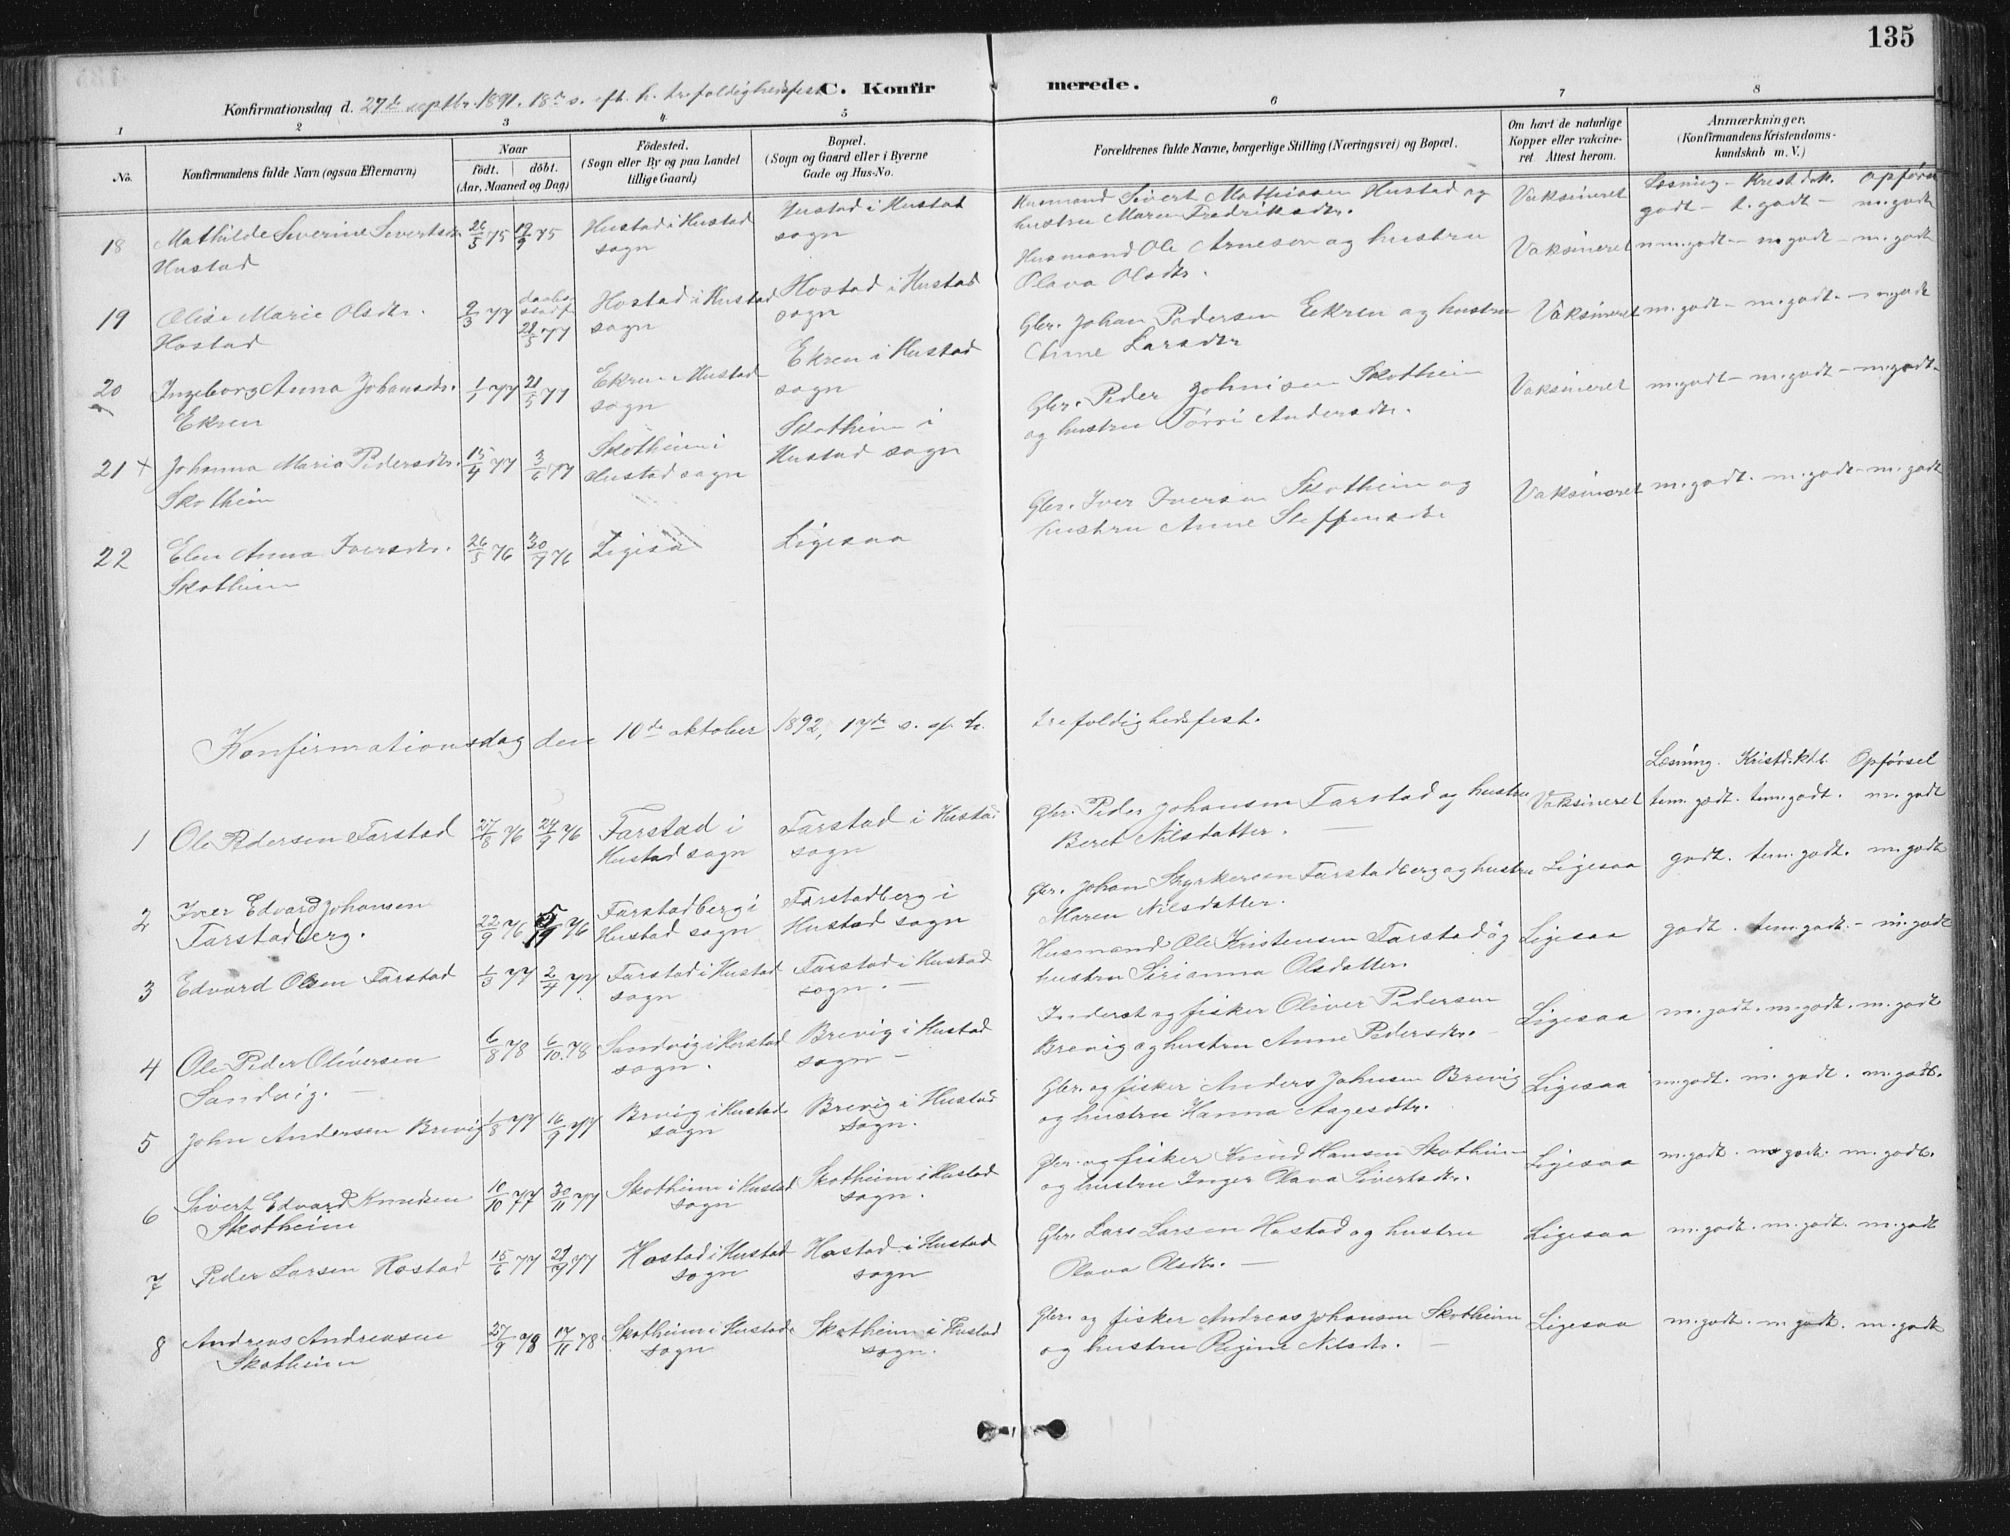 135
C. Konfirmerede.
Konfirmationsdag d. 27de septbr. 1891. 18de s. eft. h. trefoldighedsfest
1 2 3 4 5 6 7 8
No.
Konfirmandens fulde Navn (ogsaa Efternavn)
Naar
födt. döbt.
(Aar, Maaned og Dag)
Födested.
(Sogn eller By og paa Landet
tillige Gaard)
Bopæl.
(Sogn og Gaard eller i Byerne
Gade og Hus-No.
Forældrenes fulde Navne, borgerlige Stilling (Næringsvei) og Bopæl.
Om havt de naturlige
Kopper eller vakcine-
ret Attest herom.
Anmærkninger,
(Konfirmandens Kristendoms-
kundskab m. V.)
Læsning - Kristdsk. Opførs
18 Mathilde Severine Sivertsdr. 26/5 75 19/9 75 Hustad i Hustad Hustad i Hustad Husmand Sivert Mathiasen Hustad og Vaksineret godt - t. godt - m. godt
Hustad sogn sogn hustru Maren Fredriksdtr.
19 Olise Marie Olsdtr. 2/3 77 21/5 77 Hostad i Hustad Hostad i Hustad Husmand Ole Arnesen og hustru Vaksineret m. godt - m. godt - m. godt
Hostad sogn sogn Olava Olsdtr.
20 Ingeborg Anna Johansdtr. 1/1 77 21/5 77 Ekren i Hustad Ekren i Hustad Gbr. Johan Pedersen Eekren og hustru Vaksineret m. godt - m. godt - m. godt
Ekren sogn sogn Anne Larsdtr
21 + Johanna Maria Pedersdtr. 15/4 77 3/6 77 Skotheim i Skotheim i Gbr. Peder Johnisen Skotheim Vaksineret m. godt - m. godt - m. godt
Skotheim Hustad sogn Hustad sogn og hustru Andersdtr.
22 Elen Anna Iversdtr. 26/5 76 30/7 76 Ligesa Ligesaa Gbr. Iver Iversen Skotheim og Vaksineret m. godt. m. godt - m. godt
Skotheim hustru Anne Steffensdtr
Konfirmationsdag den 10de oktober 1892, 17de s. ef. h. trefoldighedsfest.
Læsning. Kristd.kdt. Opførsel
1 Ole Pedersen Farstad 27/8 76 24/9 76 Farstad i Farstad i Hustad Gbr. Peder Johansen Farstad og hustru Vaksineret tem. godt. tem. godt. m. godt
Hustad sogn sogn Beret Nilsdatter.
2 Iver Edvard Johansen 22/9 76 Farstadberg i Farstadberg i Gbr. Johan Styrkersen Farstadberg og hustru Ligesaa godt. tem. godt. m. godt
Farstadberg. Hustad sogn Hustad sogn Maren Nilsdatter.
3 Edvard Olsen Farstad 1/3 77 2/4 77 Farstad i Hustad Farstad i Hustad Husmand Ole Kristensen Farstad og Ligesaa godt. tem. godt. - m. godt
sogn sogn. - hustru Sirianna Olsdatter.
4 Ole Peder Oliversen 6/8 78 6/10 78 Sandvig i Hustad Brevig i Hustad Inderst og fisker Oliver Pedersen Ligesaa m. godt. m. godt. m. godt
Sandvig. - sogn. sogn - Brevig og hustru Anne Pedersdtr. -
5 John Andersen Brevig 1/8 77 16/9 77 Brvig i Hustad Brevig i Hustad Gbr. og fisker Anders Johnsen Brevig Ligesaa m. godt. m. godt. m. godt.
sogn sogn. og hustru Hanna Aagesdtr.
6 Sivert Edvard Knudsen 10/10 77 30/11 77 Skotheim i Hustad Skotheim i Hustad Gbr. og fisker Knud Hansen Skotheim Ligesaa m. godt. m godt. m. godt.
Skotheim sogn sogn. og hustru Inger Olava Sivertsdtr.
7 Peder Larsen Hostad 15/6 77 29/7 77 Hostad i Hustad Hostad i Hustad Gbr. Lars Larsen Hostad og hustru Ligesaa m. godt. m. godt. m. godt
sogn sogn Olava Olsdtr. -
8 Andreas Andreasen 27/9 78 17/11 78 Skotheim i Hustad Skotheim i Hustad Gbr. og fisker Andreas Johansen Skotheim Ligesaa m. godt. m. godt. m. godt
Skotheim sogn sogn. og hustru Regine Nilsdtr. -